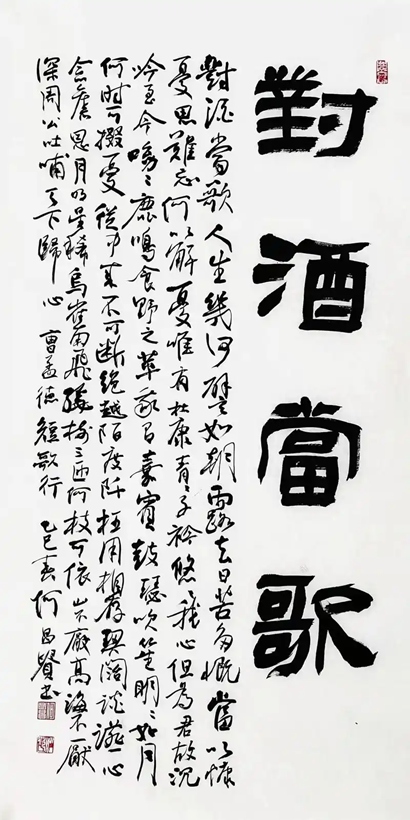 對酒當歌
對酒當歌人生幾何譬如朝露去日苦多慨當以慷
憂思難忘何以解憂惟有杜康青〻子衿悠〻我心但為君故沉
吟至今呦〻鹿鳴食野之苹我有嘉賓鼓瑟吹笙明〻如月
何時可掇憂從中來不可斷絕越陌度阡枉用相存契闊談讌心
念舊恩月明星稀烏鵲南飛繞樹三匝何枝可依山不厭高海不厭
深周公吐哺天下歸心 曹孟德短歌行 乙巳春何昌賢書